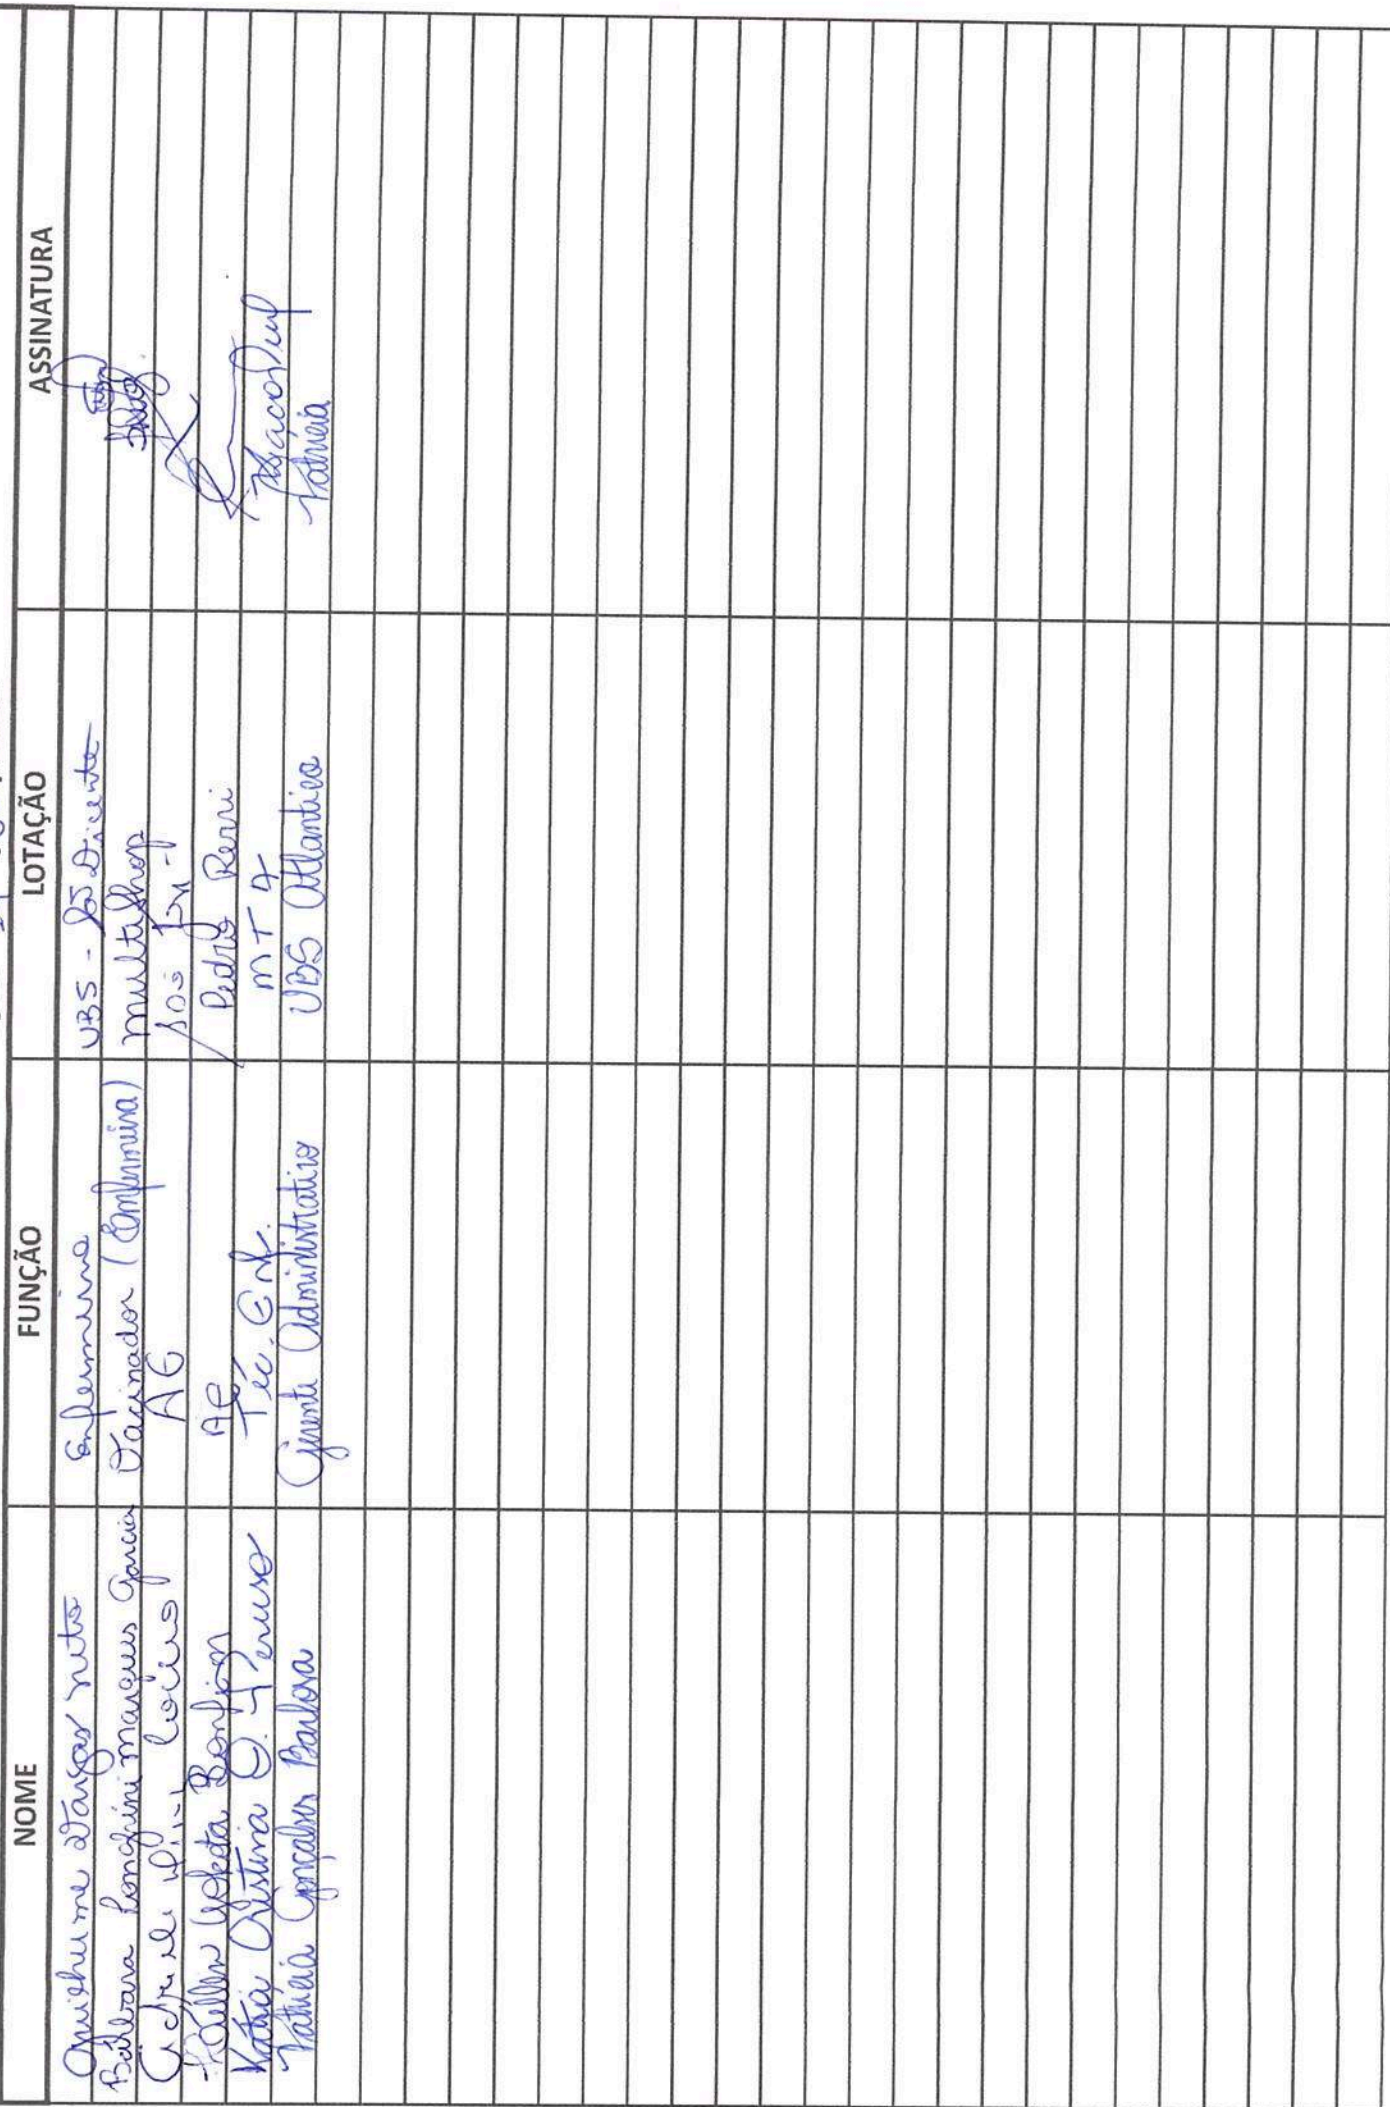 NOME FUNÇÃO LOTAÇÃO ASSINATURA
Guilherme Vargas Neto Enfermeiro UBS - São Vicente
Bárbara Longhini Marques Garcia Vacinador (Enfermeira) Multishop
AG
Yokota Bonfim AG Pedro Perri
Katia Cristina O. Peruso Téc. Enf. MT 4
Patricia Gonçalves Barbosa Gerente Administrativo UBS Atlantico Patricia